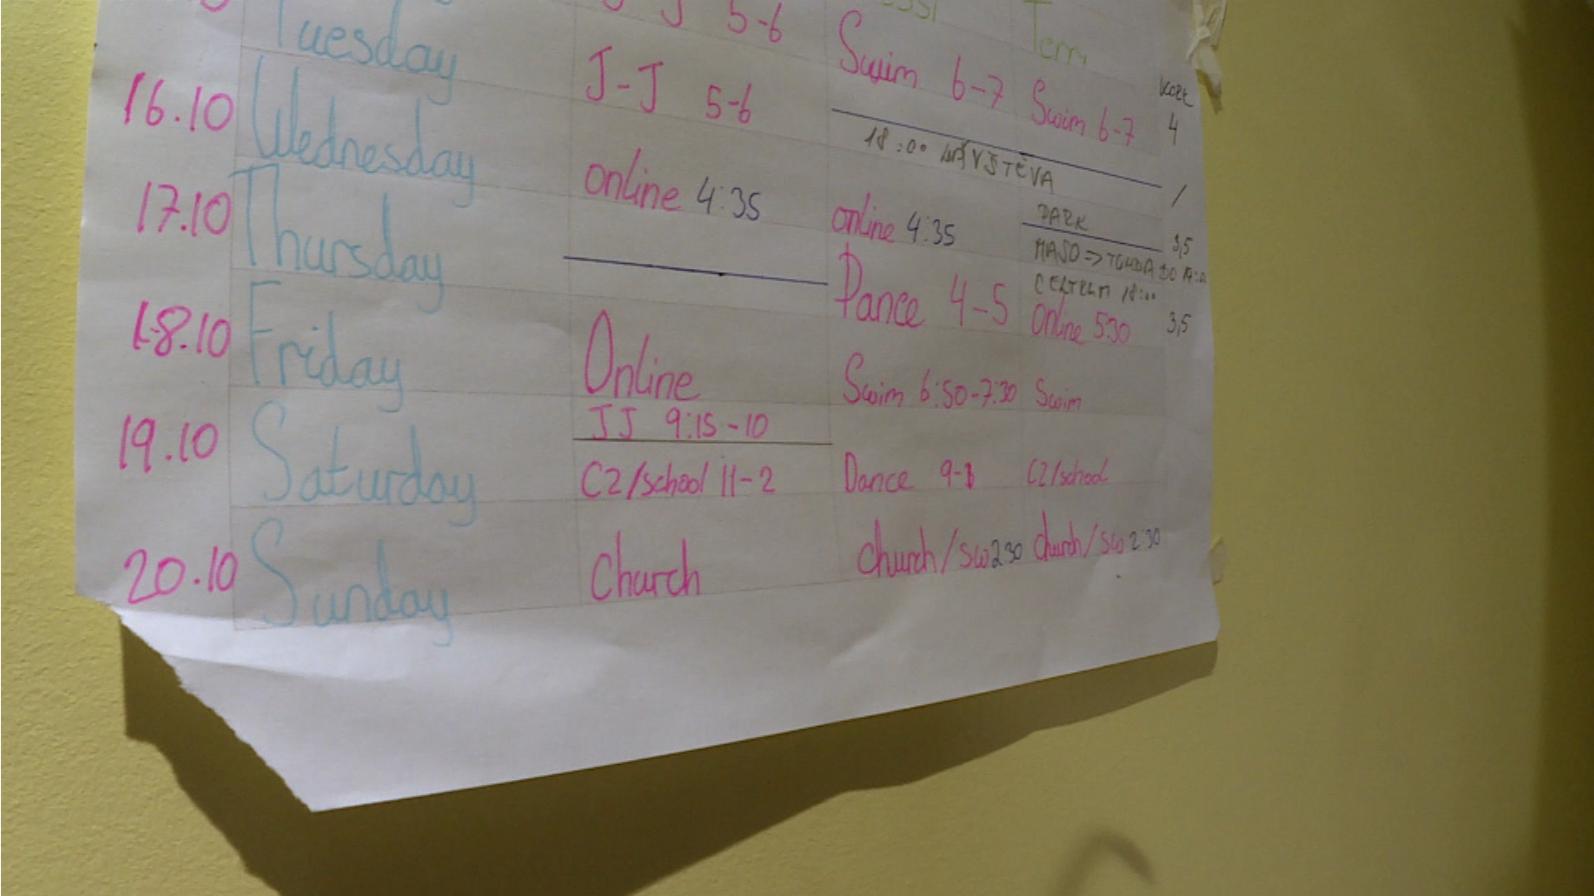 Tuesday J 5-6 Terri
16.10 Wednesday J-J 5-6 Swim 6-7 Swim 6-7 4
18:00 NÁVŠTĚVA
17.10 Thursday online 4:35 online 4:35 3,5
MASO =>
Dance 4-5 Online 5:30 3,5
18.10 Friday Online Swim 6:50-7:30 Swim
JJ 9:15-10
19.10 Saturday C2/school 11-2 Dance 9-1 C2/school
20.10 Sunday Church church/sw 2:30 church/sw 2:30